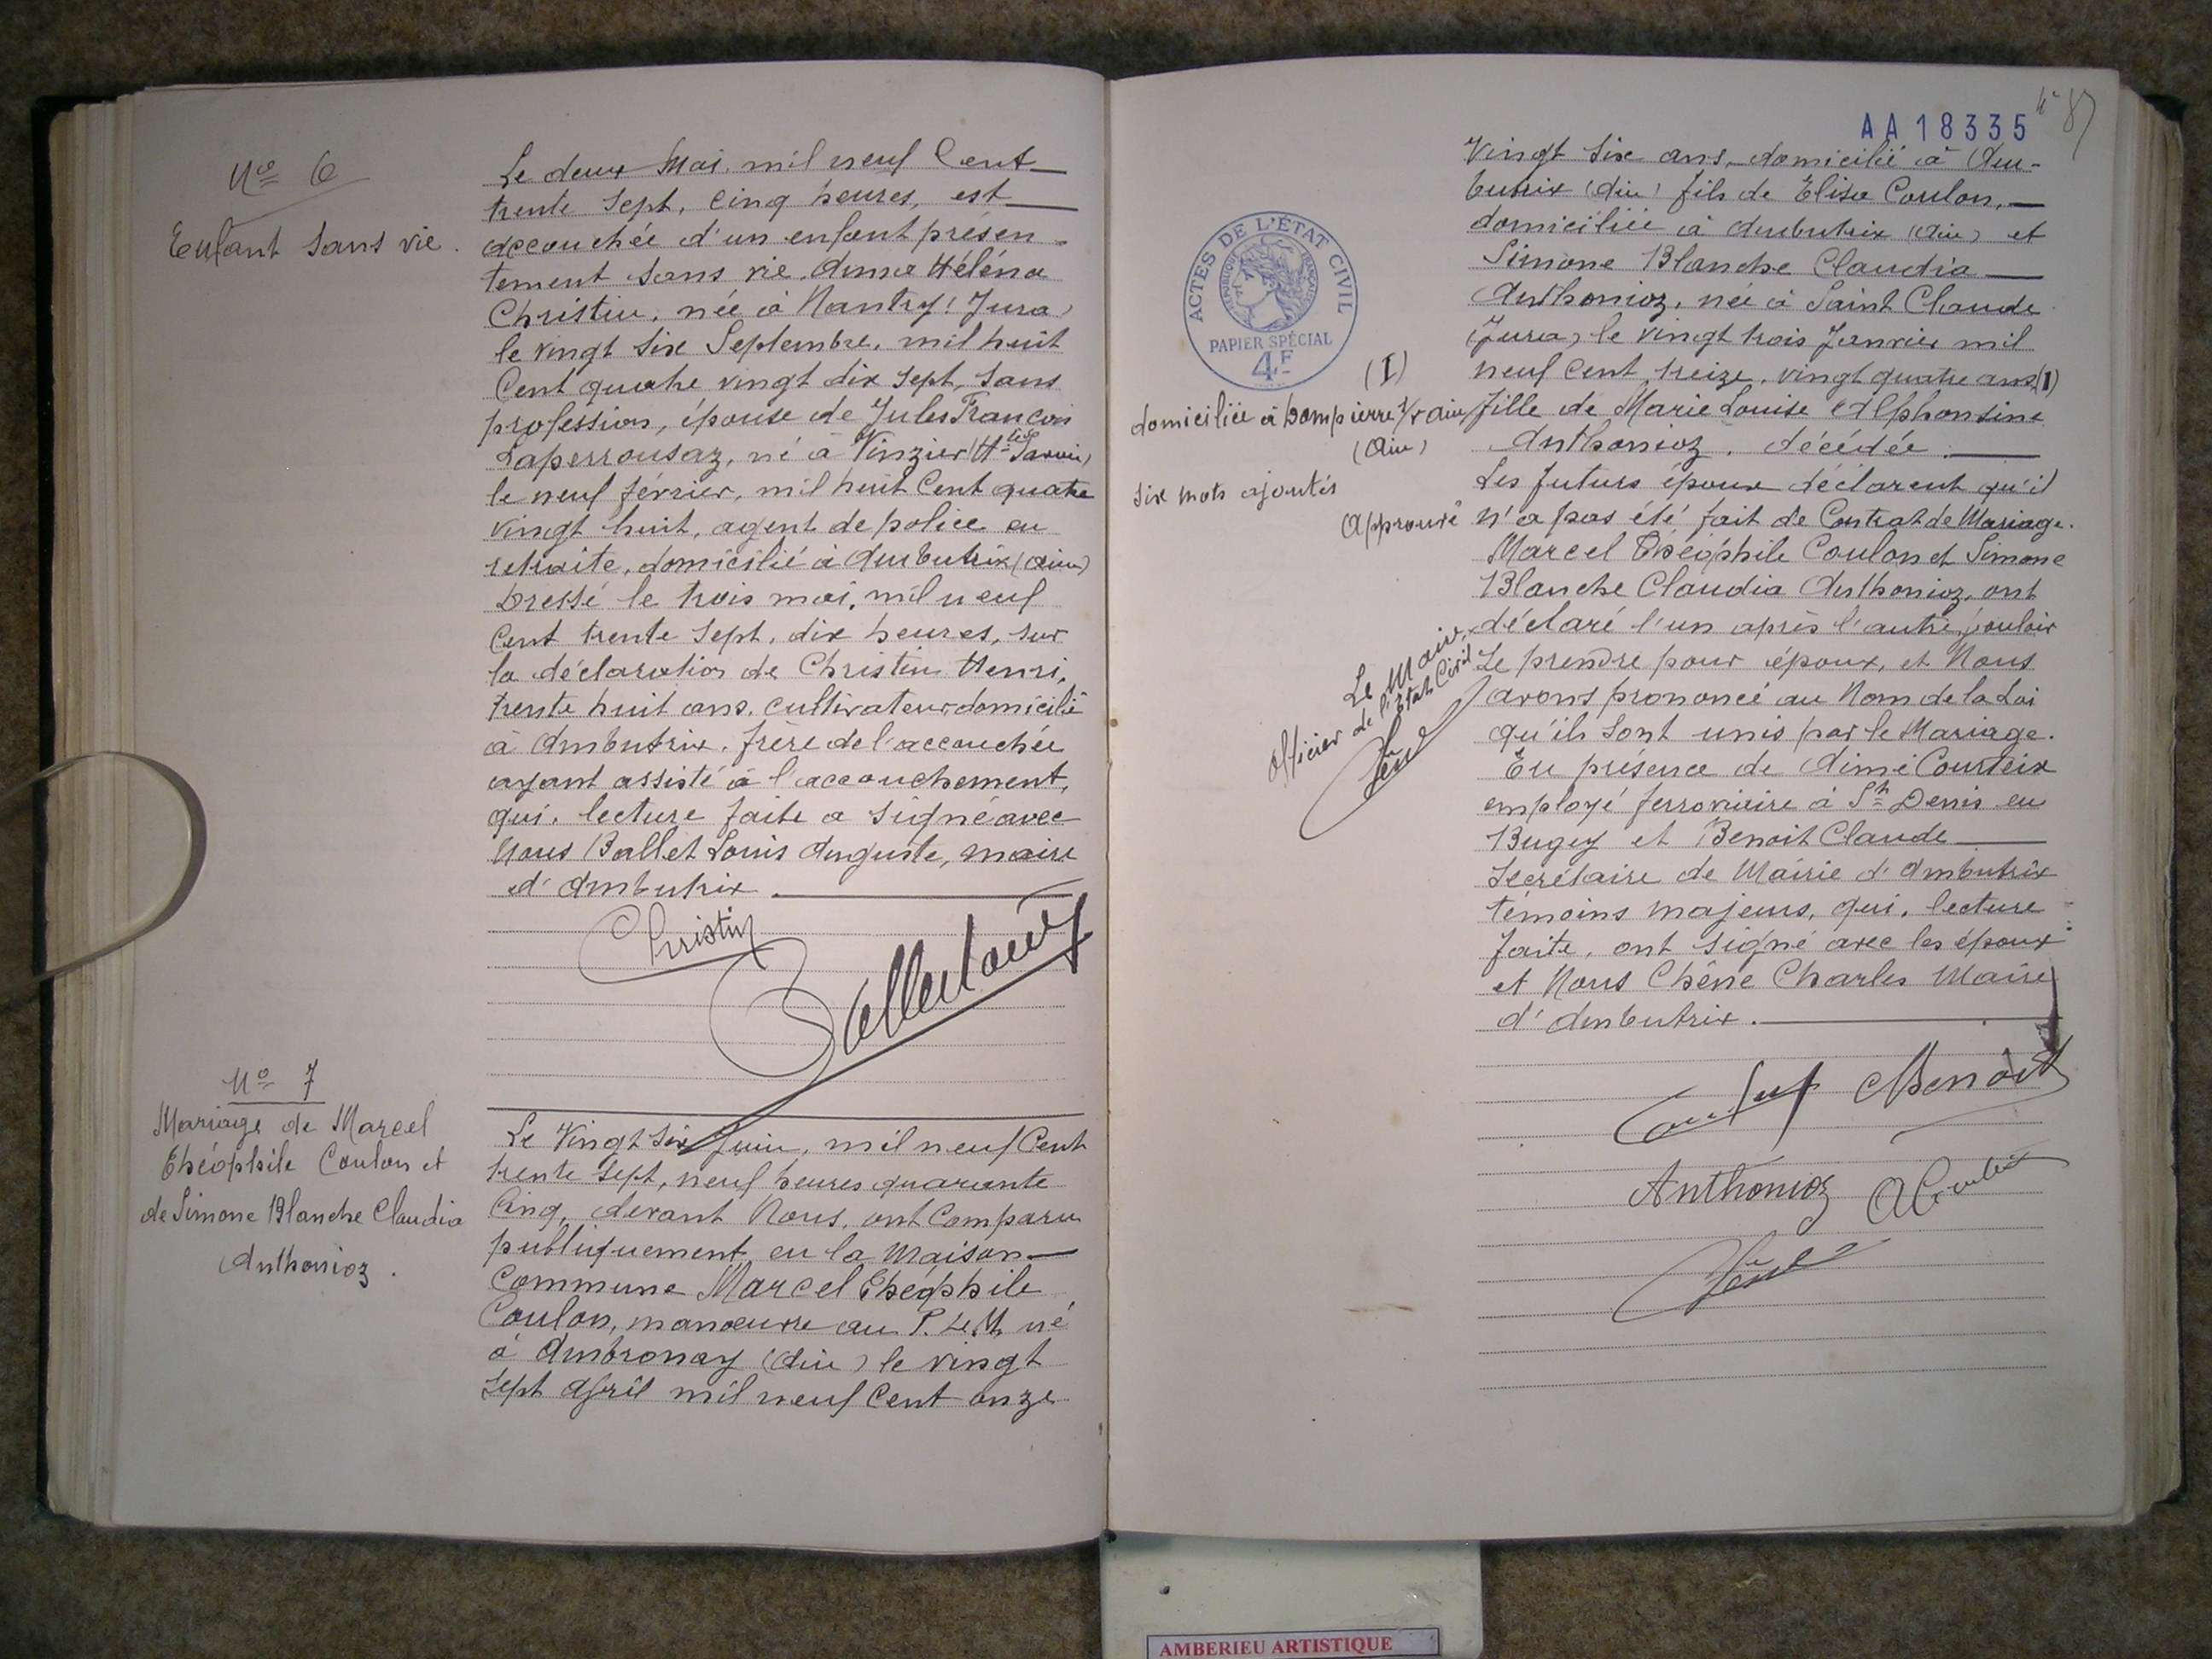 Nº 6
Enfant sans vie.
Le deux Mai, mil neuf Cent
trente sept, cinq heures, est
accouchée d'un enfant présen-
tement sans vie, Anna Héléna
Christin, née à Nantey (Jura)
le vingt six Septembre, mil huit
Cent quatre vingt dix sept, sans
profession, épouse de Jules François
Laperrousaz, né à Vinzier (Hte Savoie)
le neuf février, mil huit Cent quatre
vingt huit, agent de police en
retraite, domicilié à Ambutrix (Ain)
Dressé le trois mai, mil neuf
Cent trente sept, dix heures, sur
la déclaration de Christin Henri,
trente huit ans, cultivateur domicilié
à Ambutrix, frère de l'accouchée
ayant assisté à l'accouchement,
qui, lecture faite a signé avec
Nous Ballet Louis Auguste, maire
d'Ambutrix
Christin
Ballet Louis
Nº 7
Mariage de Marcel
Théophile Coulon et
de Simone Blanche Claudia
Anthonioz.
Le Vingt Six Juin, mil neuf Cent
trente sept, neuf heures quarante
Cinq, devant Nous, ont Comparu
publiquement en la Maison
Commune Marcel Théophile
Coulon, manœuvre au P.L.M. né
à Ambronay (Ain) le vingt
sept Avril mil neuf Cent onze
AA18335
87
Vingt six ans, domicilié à Am-
butrix (Ain) fils de Elisa Coulon,
domiciliée à Ambutrix (Ain) et
Simone Blanche Claudia
Anthonioz, née à Saint Claude
(Jura) le vingt trois Janvier mil
neuf Cent treize, vingt quatre ans (I)
fille de Marie Louise Alphonsine
Anthonioz, décédée.
Les futurs époux déclarent qu'il
n'a pas été fait de Contrat de Mariage.
Marcel Théophile Coulon et Simone
Blanche Claudia Anthonioz, ont
déclaré l'un après l'autre, vouloir
se prendre pour époux, et Nous
avons prononcé au Nom de la Loi
qu'ils sont unis par le Mariage.
En présence de Aimé Courteix
employé ferroviaire à St Denis en
Bugey et Benoit Claude
Secrétaire de Mairie d'Ambutrix
témoins majeurs, qui, lecture
faite, ont signé avec les époux
et Nous Chêne Charles Maire
d'Ambutrix.
ACTES DE L'ÉTAT CIVIL
RÉPUBLIQUE FRANÇAISE
PAPIER SPÉCIAL
4F
(I)
domiciliée à Dompierre s/r Ain
(Ain)
six mots ajoutés
Approuvé
Le Maire,
officier de l'Etat Civil
Chêne
Benoit
Anthonioz
Chêne
AMBERIEU ARTISTIQUE